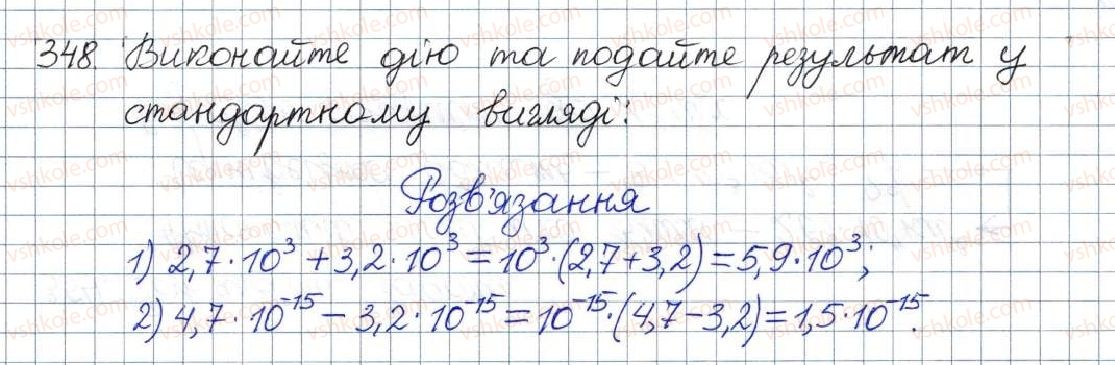 348. Виконайте дію та подайте результат у
стандартному вигляді:
Розв'язання
1) 2,7·10³ + 3,2·10³ = 10³·(2,7+3,2) = 5,9·10³;
2) 4,7·10⁻¹⁵ − 3,2·10⁻¹⁵ = 10⁻¹⁵·(4,7−3,2) = 1,5·10⁻¹⁵.